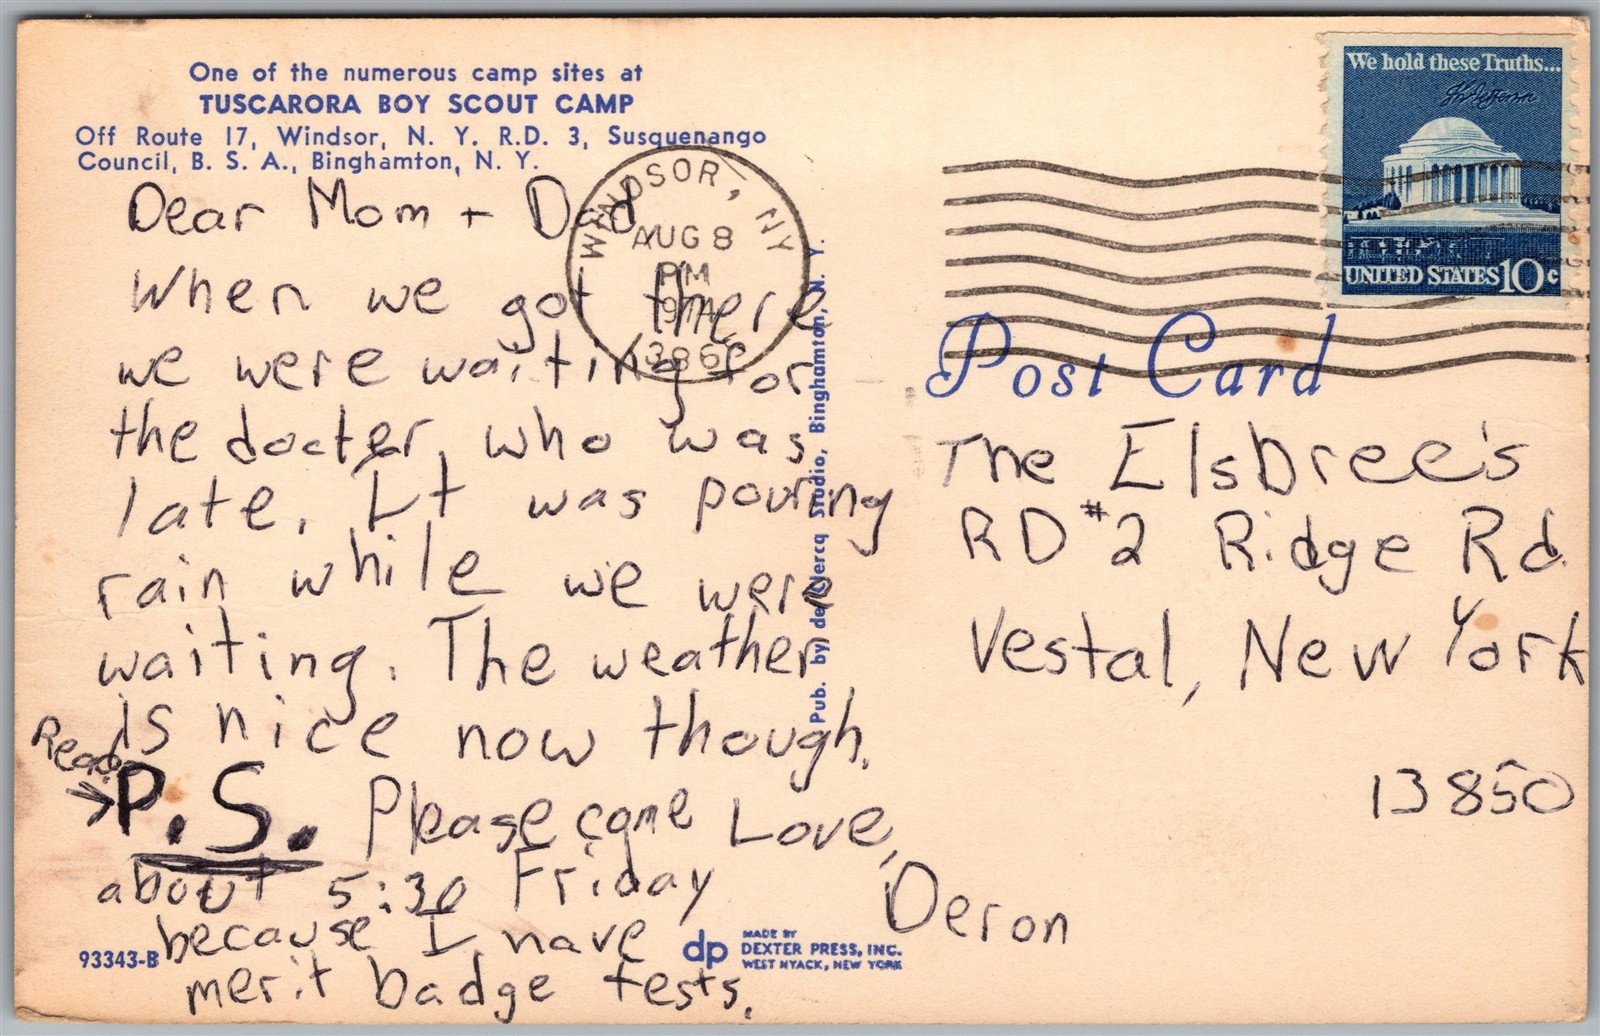 One of the numerous camp sites at
TUSCARORA BOY SCOUT CAMP
Off Route 17, Windsor, N. Y. R.D. 3, Susquenango
Council, B. S. A., Binghamton, N. Y.
Dear Mom + Dad
When we got there
we were waiting for
the docter, who was
late. It was pouring
rain while we were
waiting. The weather
is nice now though.
Read
→ P.S. Please come
about 5:30 Friday
because I have
merit badge tests.
Love,
Deron
93343-B
dp
MADE BY
DEXTER PRESS, INC.
WEST NYACK, NEW YORK
Pub. by de Clercq Studio, Binghamton, N. Y.
WINDSOR, NY
AUG 8
PM
1974
We hold these Truths...
Th Jefferson
UNITED STATES 10c
Post Card
The Elsbree's
RD #2 Ridge Rd.
Vestal, New York
13850